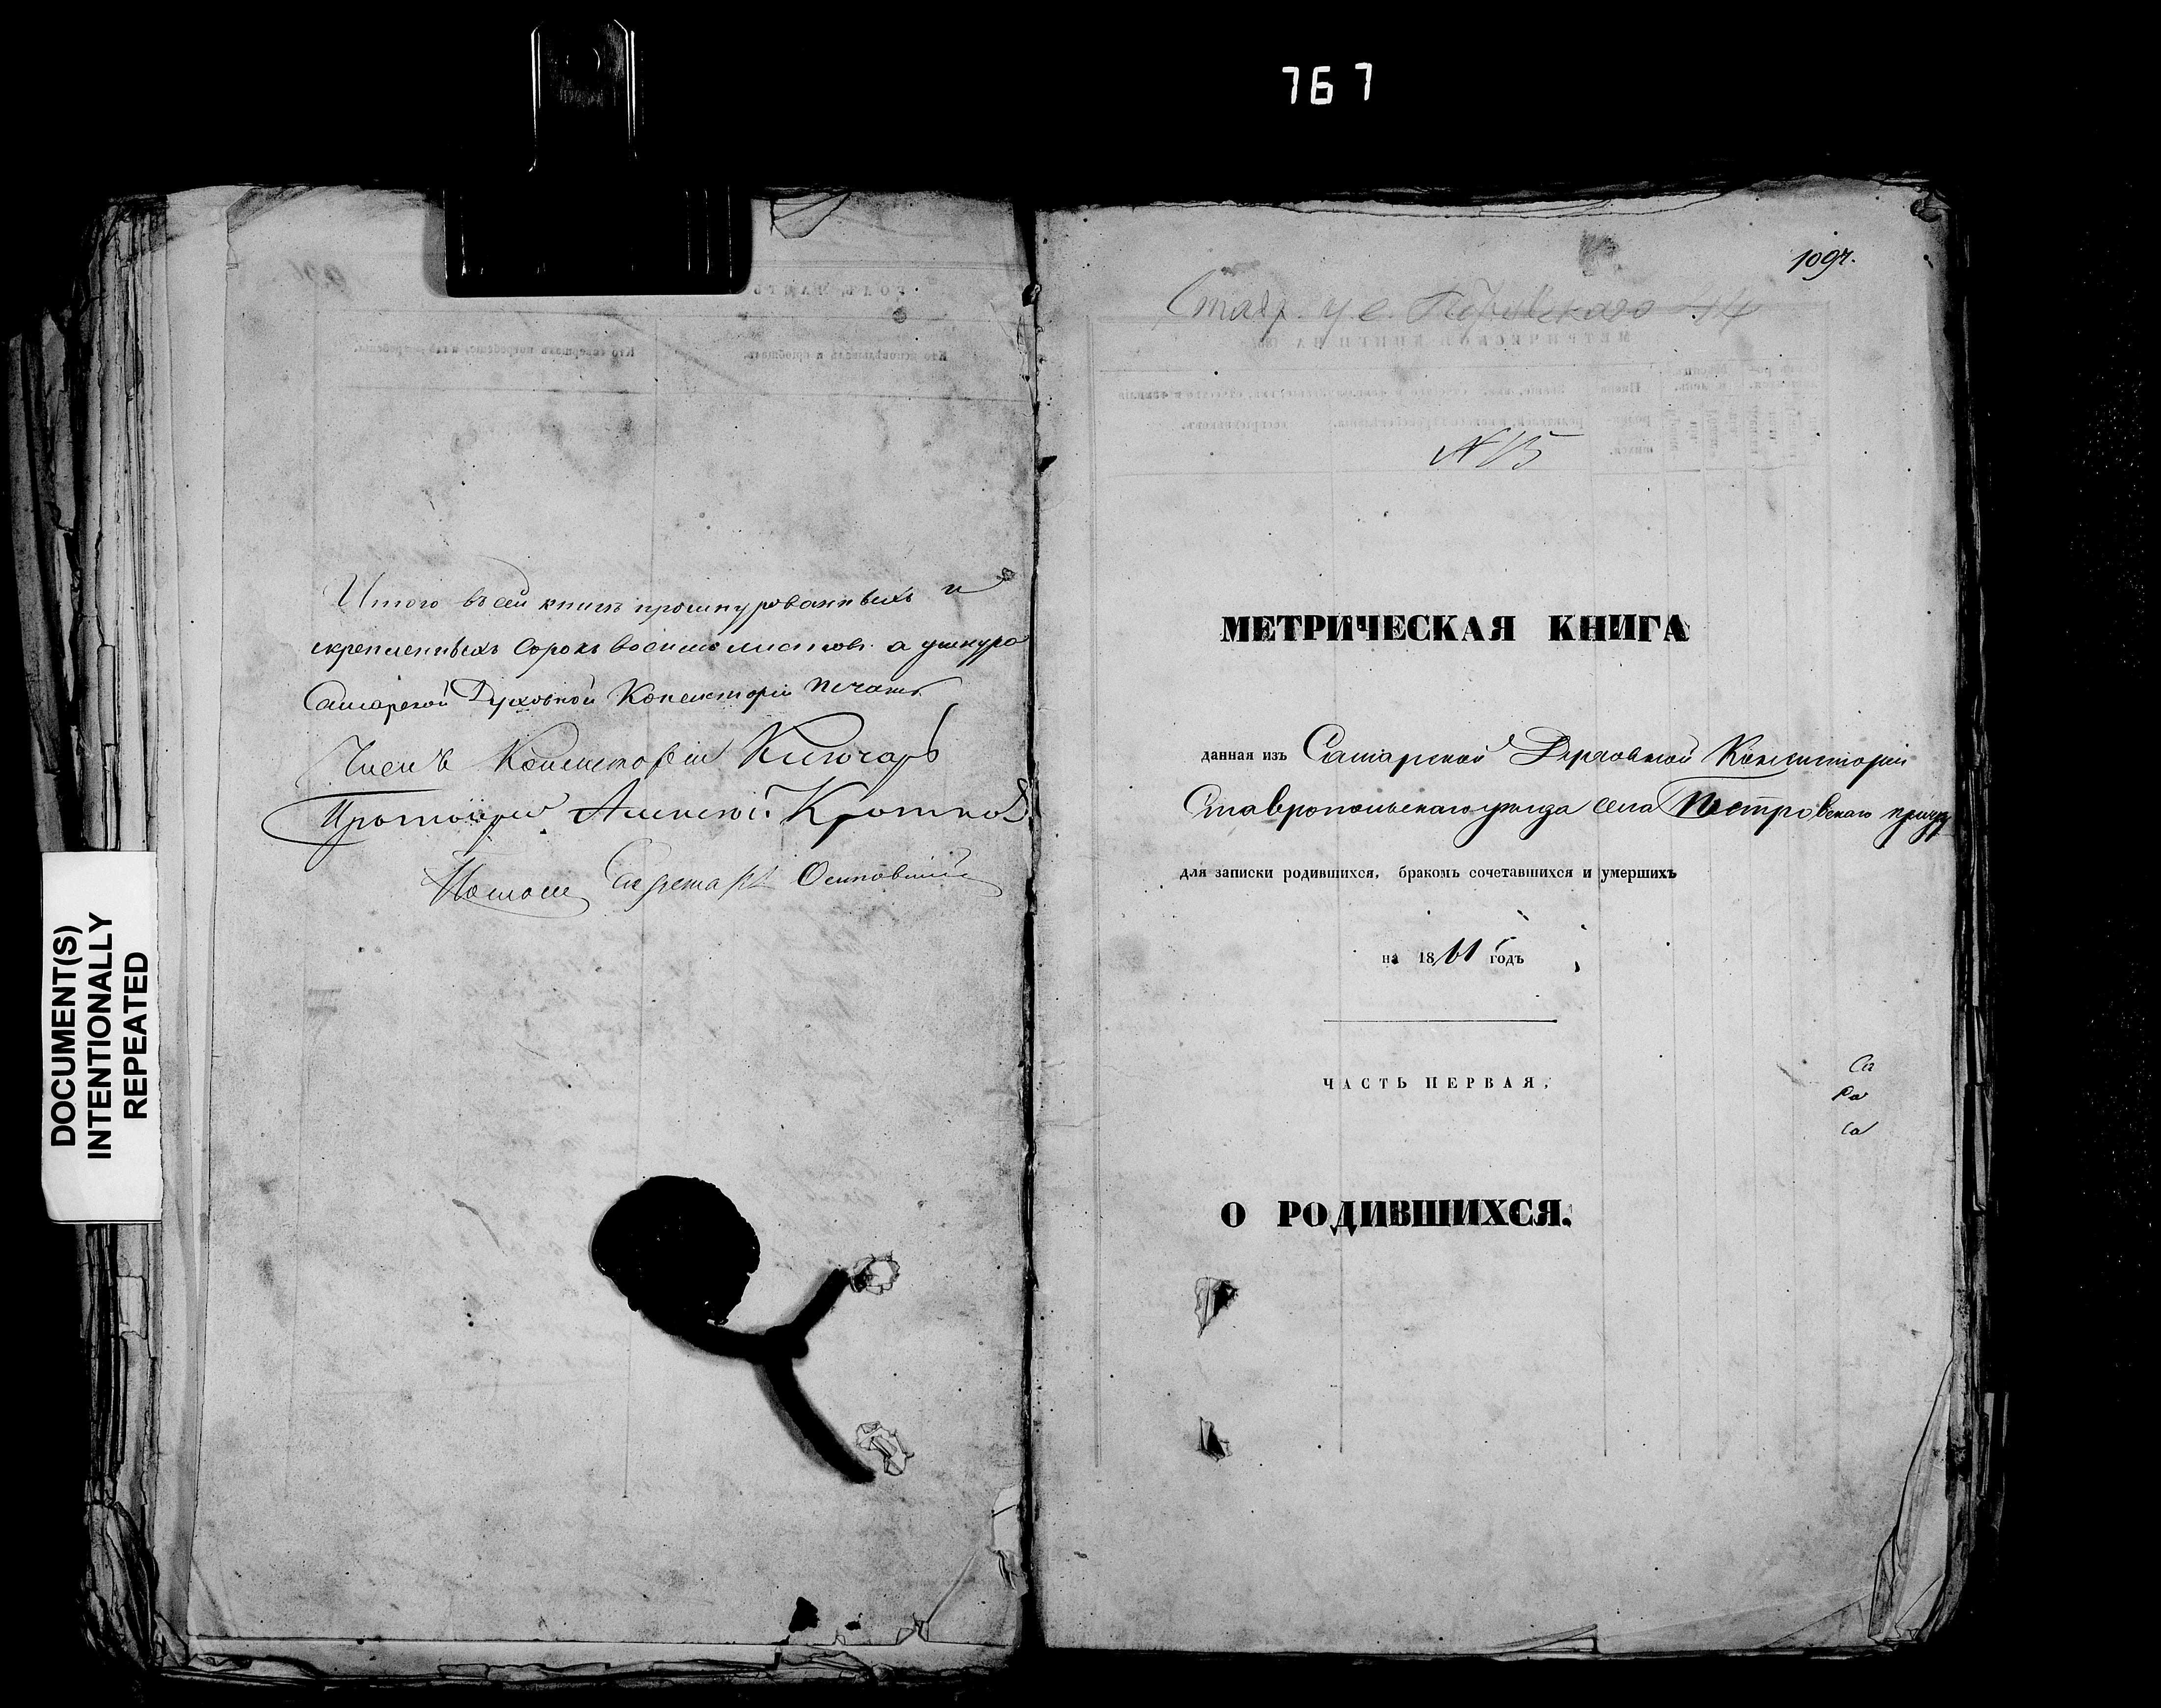 767
DOCUMENT(S)
INTENTIONALLY
REPEATED
Итого въ сей книгѣ прошнурованныхъ и
скрепленныхъ сорокъ восемь листовъ. а у шнура
Самарской Духовной Консисторіи печать
Членъ Консисторіи Ключарь
Протоіерей Алексѣй Кротков
Секретарь
1097.
Ставр. у. с. Петровскаго 44
N 15
МЕТРИЧЕСКАЯ КНИГА
данная изъ Самарской Духовной Консисторіи
Ставропольскаго уезда села Петровскаго причту
для записки родившихся, бракомъ сочетавшихся и умершихъ
на 1861 годъ
ЧАСТЬ ПЕРВАЯ.
О РОДИВШИХСЯ.
Са
Ра
Са